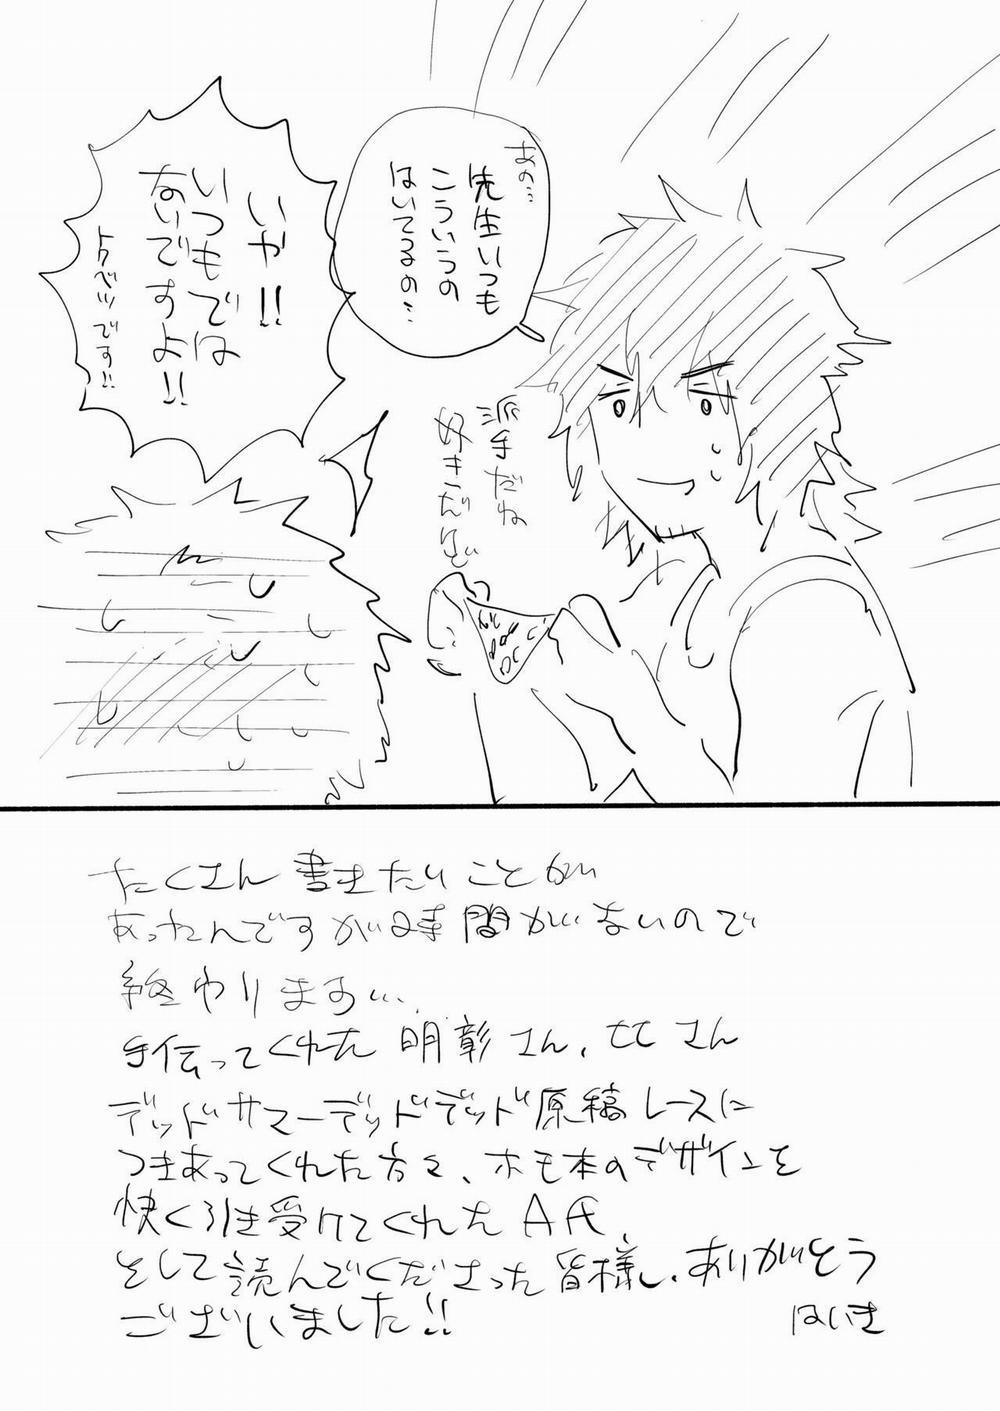 あの…
先生いつも
こういうの
はいてるの…
いや!!
いつもでは
ないですよ!!
トクベツです!!
派手だね
好きだけど
たくさん書きたいことが
あったんですが時間がないので
終わります…
手伝ってくれた明彰さん、七七さん
デッドサマーデッドデッド原稿レースに
つきあってくれた方々、ホモ本のデザインを
快く引き受けてくれたA氏、
そして読んでくださった皆様、ありがとう
ございました!!
はいき